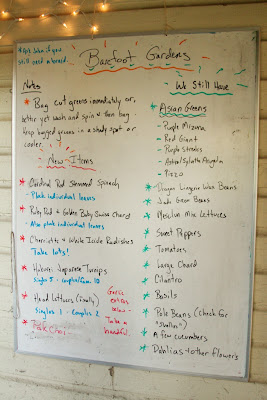 * Ask John if you
still need a bread.
Barefoot Gardens
Notes
* Bag cut greens immediately or,
better yet wash and spin & then bag.
Keep bagged greens in a shady spot or
cooler.
New Items
* Cardinal Red Stemmed Spinach
- Pluck individual leaves
* Ruby Red & Golden Baby Swiss Chard
- Also pluck individual leaves
* Cherriette & White Icicle Radishes
Take lots!
* Hakurei Japanese Turnips
Singles 5 - couples/fam. 10
* Head Lettuces (finally)
Singles 1 - Couples 2
* Pak Choi
Garlic
extras
below -
Take a
handful.
We Still Have
* Asian Greens
- Purple Mizuna
- Red Giant
- Purple Streaks
- Astro/Splatta Arugula
- Pizzo
* Dragon Lingerie Wax Beans
* Jade Green Beans
* Mesclun Mix Lettuces
* Sweet Peppers
* Tomatoes
* Large Chard
* Cilantro
* Basils
* Pole Beans (check for
"swollen")
* A few cucumbers
* Dahlias + other flowers